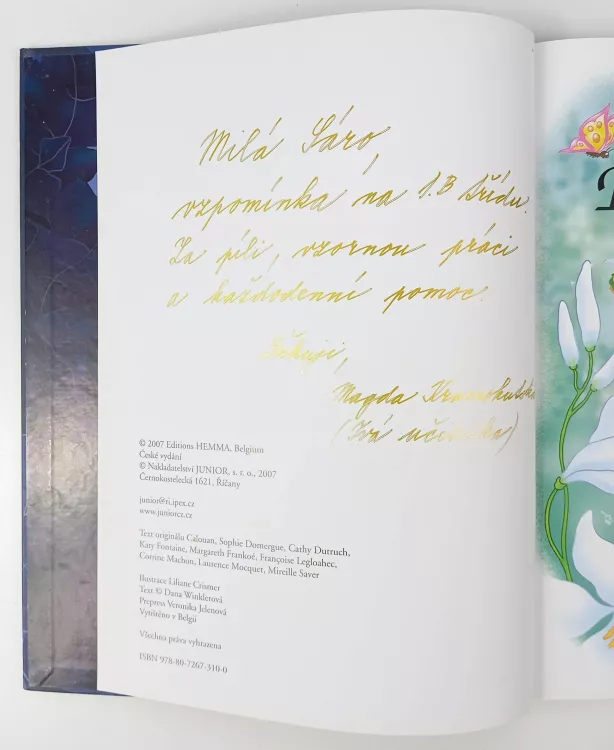 Milá Sáro,
vzpomínka na 1.B třídu.
Za píli, vzornou práci
a každodenní pomoc.
Děkuji,
Magda
(Tvá učitelka)
© 2007 Editions HEMMA, Belgium
České vydání
© Nakladatelství JUNIOR, s. r. o., 2007
Černokostelecká 1621, Říčany
junior@ri.ipex.cz
www.juniorcz.cz
Text originálu Calouan, Sophie Domergue, Cathy Dutruch,
Katy Fontaine, Margareth Frankoé, Françoise Legloahec,
Corrine Machon, Laurence Mocquet, Mireille Saver
Ilustrace Liliane Crismer
Text © Dana Winklerová
Prepress Veronika Jelenová
Vytištěno v Belgii
Všechna práva vyhrazena
ISBN 978-80-7267-310-0